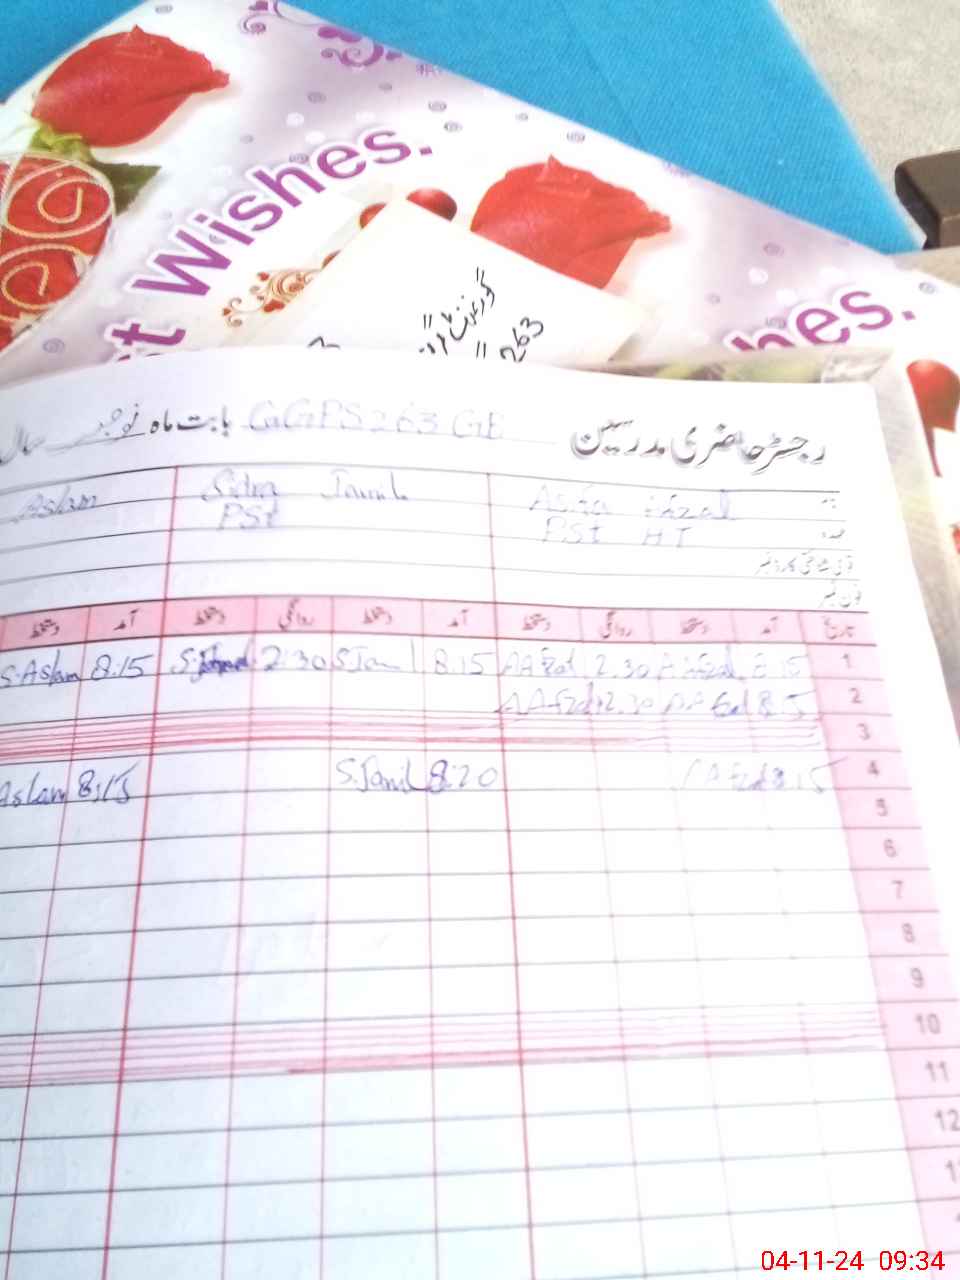 t Wishes.
hes.
گورنمنٹ
263
رجسٹر حاضری مدرسین GGPS 263 GB بابت ماہ نومبر سال
نام Jamil Aslam
عہدہ PSt HT PSt
فون نمبر
تاریخ آمد دستخط روانگی دستخط آمد دستخط روانگی دستخط آمد دستخط
1 8:15 A Afzal 2.30 A Afzal 8.15 S.Jamil 2:30 S.Jamil 8:15 S.Aslam
2 8:15 A Afzal 2.30 A Afzal
3
4 8:15 A Afzal 8:20 S.Jamil 8:15 Aslam
5
6
7
8
9
10
11
12
04-11-24 09:34